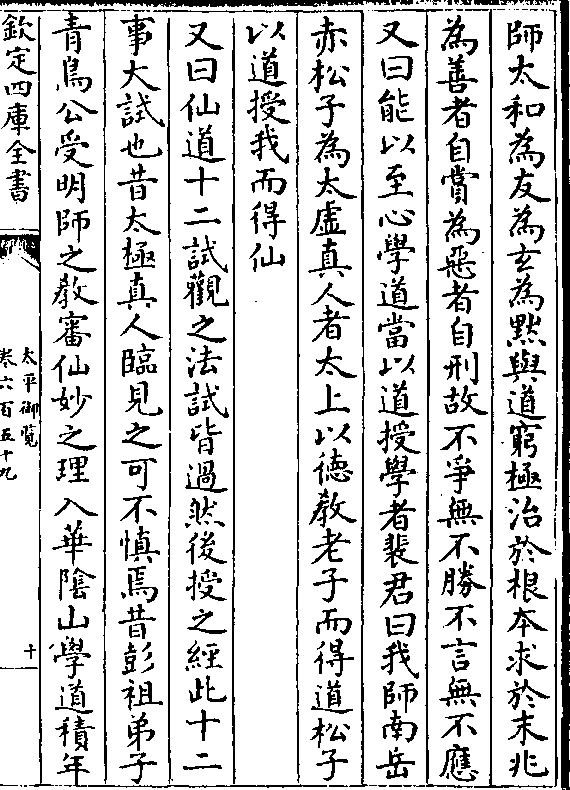 師太和為友為玄為黙與道窮極治於根本求於末兆
為善者自賞為惡者自刑故不爭無不勝不言無不應
又曰能以至心學道當以道授學者裴君曰我師南岳
赤松子為太虛真人者太上以徳教老子而得道松子
以道授我而得仙
又曰仙道十二試觀之法試皆過然後授之經此十二
事大試也昔太極真人臨見之可不慎焉昔彭祖弟子
青鳥公受明師之教審仙妙之理入華陰山學道積年
欽定四庫全書
太平御覧
卷六百五十九
十